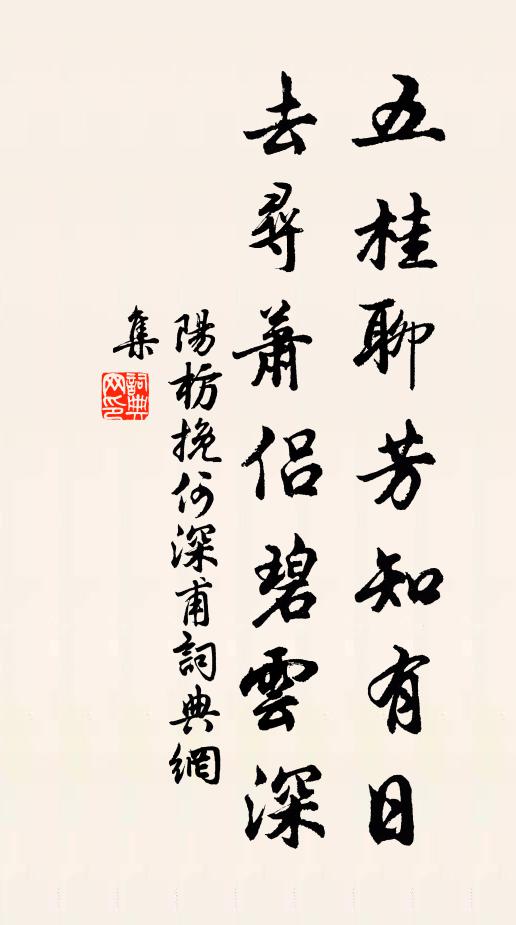 五桂聊芳知有日
去尋蕭侶碧雲深
陽枋挽何深甫詞典網
集
詞典
网印